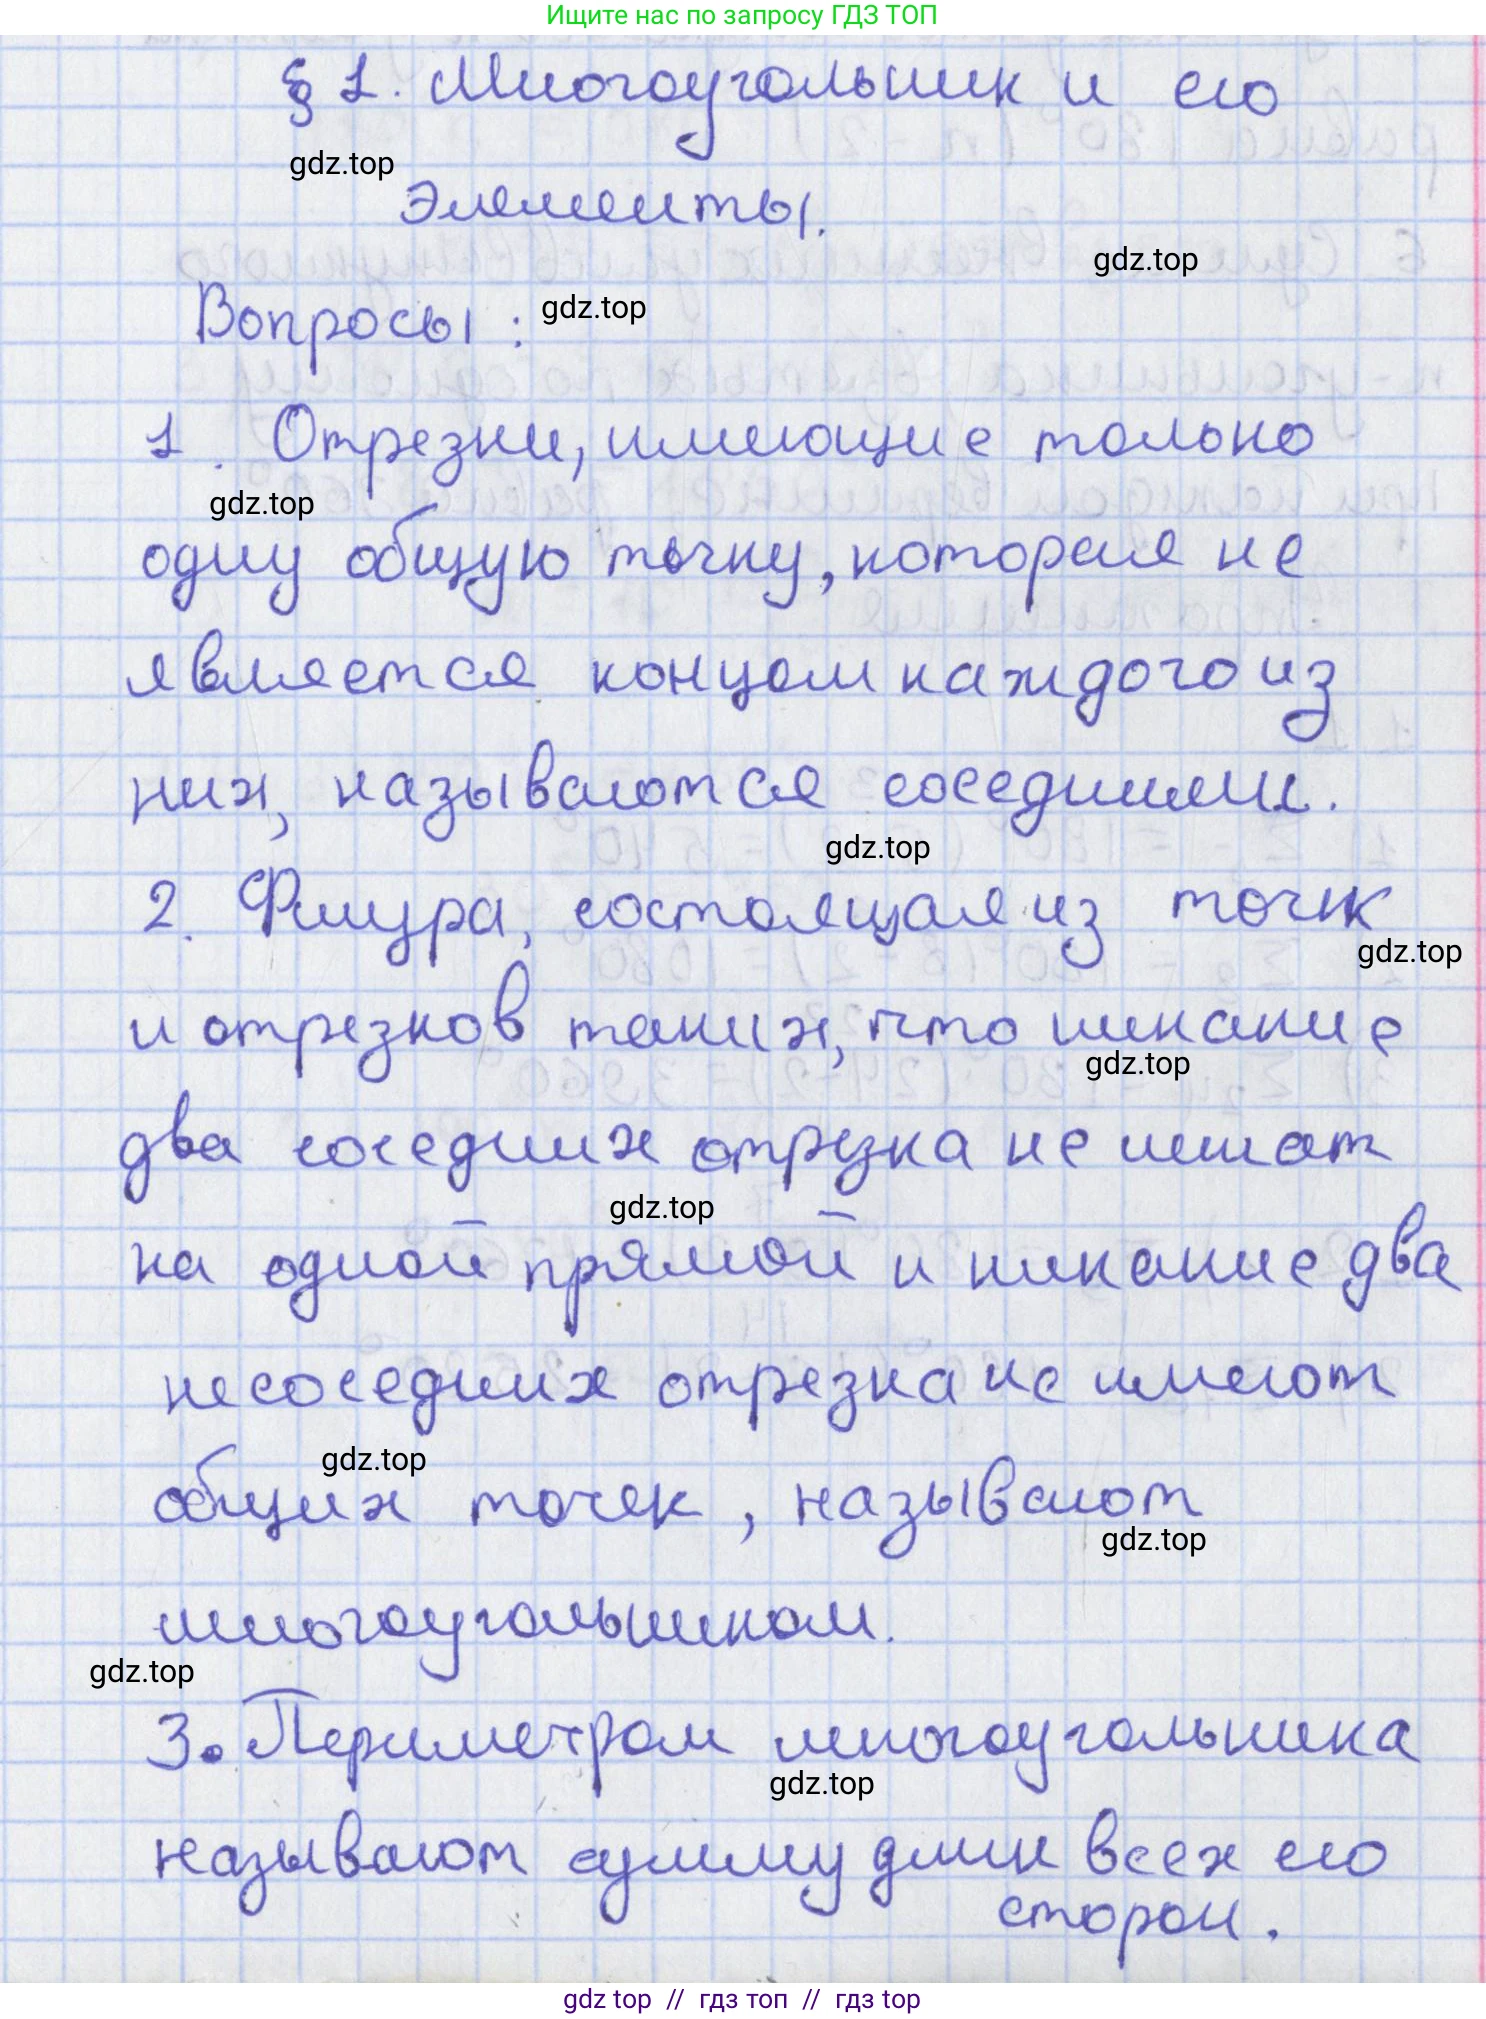 Ищите нас по запросу ГДЗ ТОП
§ 1. Многоугольник и его
gdz.top
элементы.
gdz.top
Вопросы :
gdz.top
1. Отрезки, имеющие только
gdz.top
одну общую точку, которая не
является концом каждого из
них, называются соседними.
gdz.top
2. Фигура, состоящая из точек
gdz.top
и отрезков таких, что никакие
gdz.top
два соседних отрезка не лежат
gdz.top
на одной прямой и никакие два
несоседних отрезка не имеют
gdz.top
общих точек, называют
gdz.top
многоугольником.
gdz.top
3. Периметром многоугольника
gdz.top
называют сумму длин всех его
сторон.
gdz top // гдз топ // гдз top